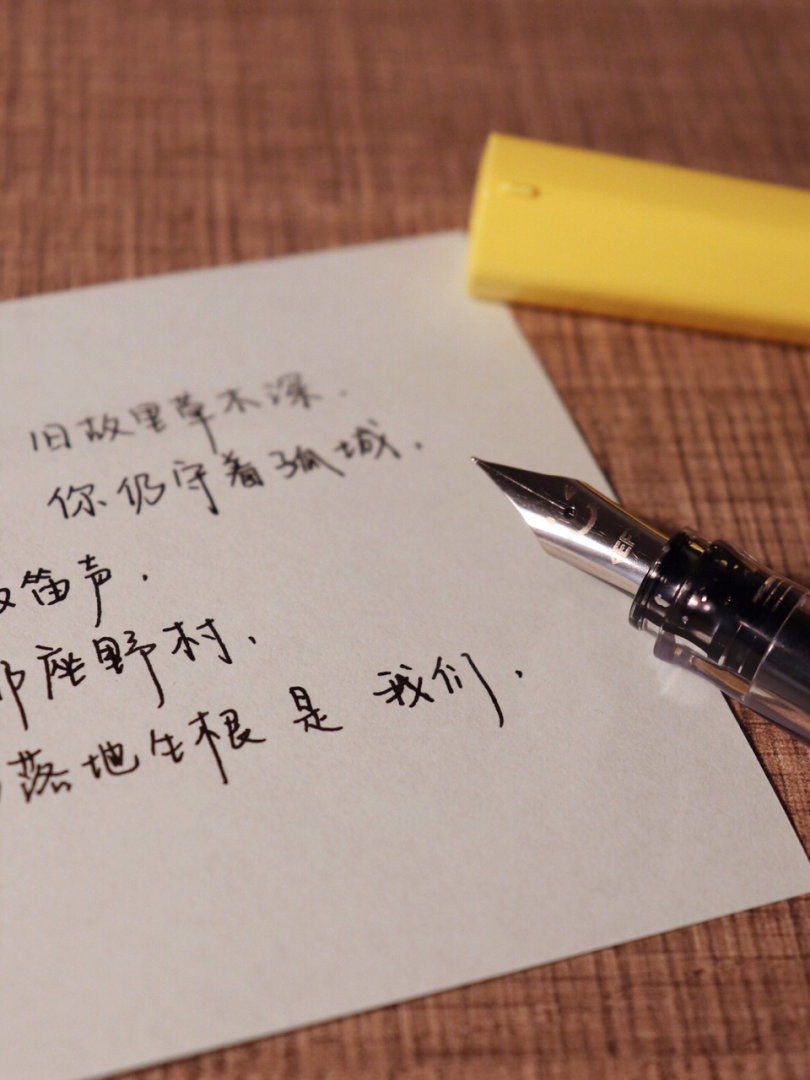 旧故里草木深.
你仍守着孤城.
笛声.
座野村.
落地生根是我们.
EF